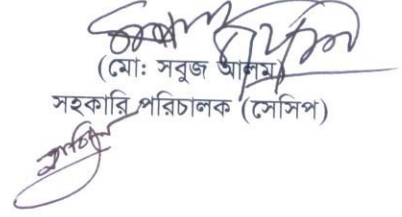 (মো: সবুজ আলম)
সহকারি পরিচালক (সেসিপ)